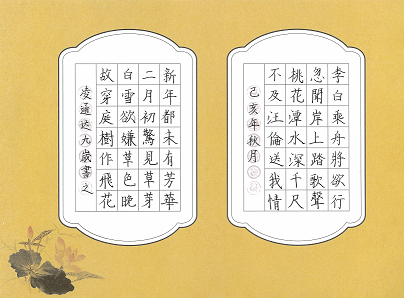 李白乘舟將欲行
忽聞岸上踏歌聲
桃花潭水深千尺
不及汪倫送我情
己亥年秋月
新年都未有芳華
二月初驚見草芽
白雪欲嫌草色晚
故穿庭樹作飛花
凌通达九歲書之